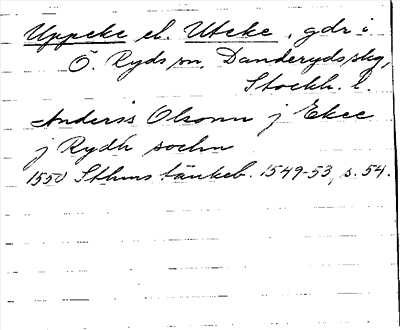 Uppeke el. Uteke, gdr i
Ö. Ryds sn, Danderyds skg,
Stockh. l.
Anderss Olsonn j Ekee
j Rydh sochn
1550 Sthms tänkeb. 1549-53, s. 54.